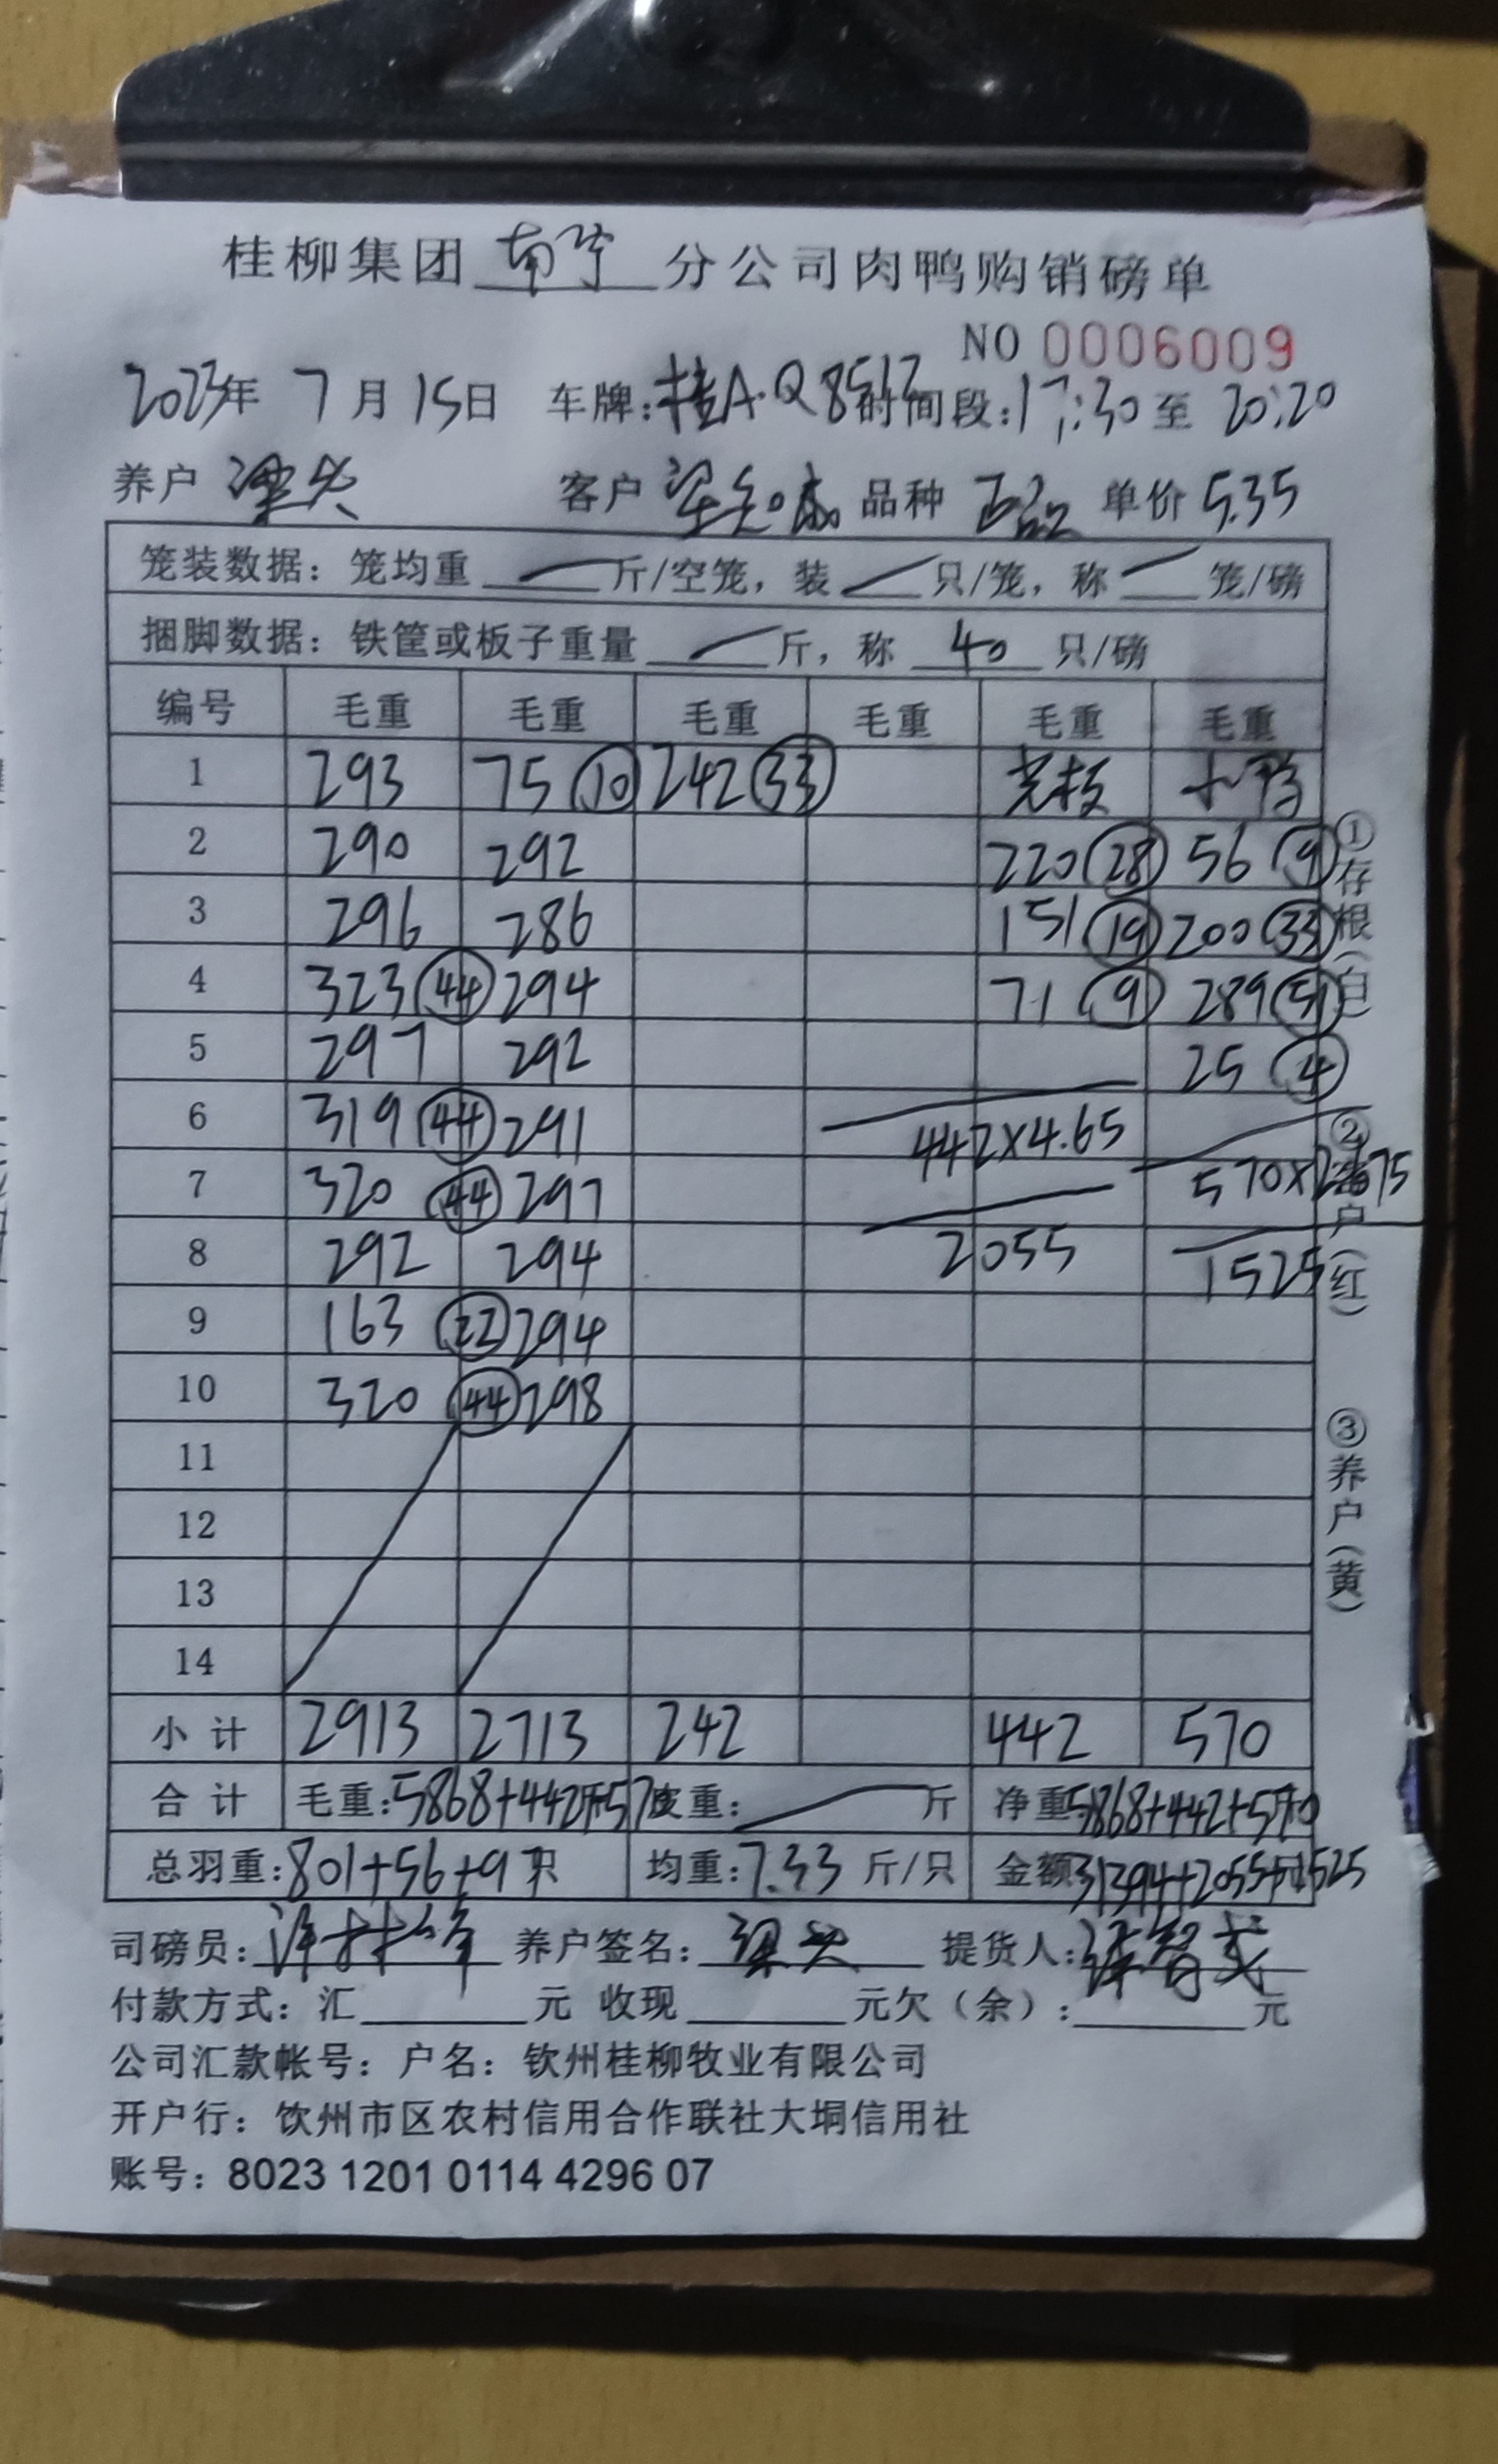 桂柳集团 南宁 分公司肉鸭购销磅单
NO 0006009
2023年 7月 15日 车牌:桂A·Q8512 时间段:17:30 至 20:20
养户 梁 客户 梁 品种 单价 5.35
笼装数据: 笼均重 斤/空笼, 装 只/笼, 称 笼/磅
捆脚数据: 铁筐或板子重量 斤, 称 40 只/磅
编号 毛重 毛重 毛重 毛重 毛重 毛重
1 293 75 (10) 242 (33) 小鸭
2 290 292 220 (28) 56 (9)
3 296 286 151 (19) 200 (33)
4 323 (44) 294 71 (9) 289 (51)
5 297 292 25 (4)
6 319 (44) 291 442×4.65
7 320 (44) 297 570×2.675
8 292 294 2055 1525
9 163 (22) 294
10 320 (44) 298
11
12
13
14
小计 2913 2713 242 442 570
合计 毛重:5868+442+570 皮重: 斤 净重5868+442+570
总羽重:801+56+97只 均重:7.33 斤/只 金额31394+2055+1525
司磅员: 养户签名:梁 提货人:
付款方式: 汇 元 收现 元欠(余): 元
公司汇款帐号: 户名: 钦州桂柳牧业有限公司
开户行: 饮州市区农村信用合作联社大垌信用社
账号: 8023 1201 0114 4296 07
①存根(白)
②客户(红)
③养户(黄)